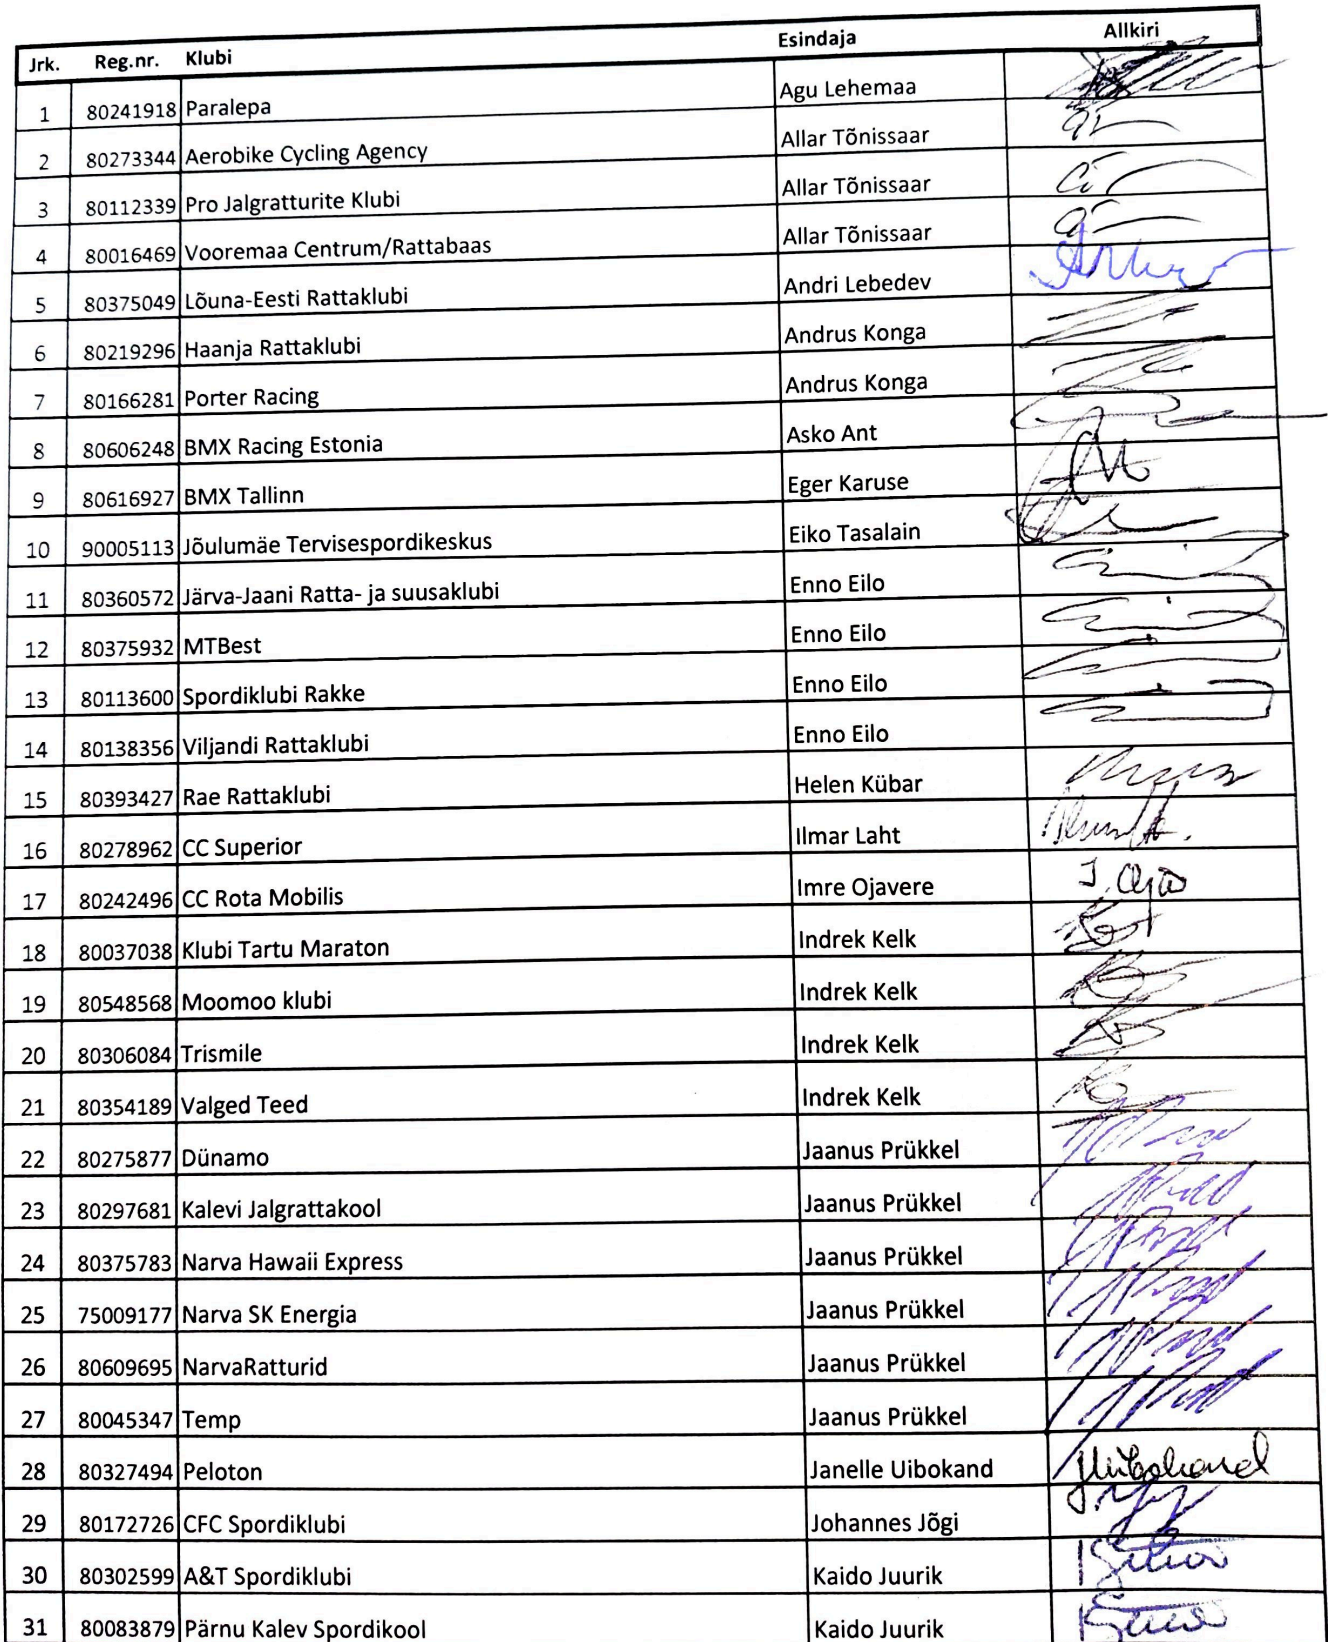 Jrk. Reg.nr. Klubi Esindaja Allkiri
1 80241918 Paralepa Agu Lehemaa
2 80273344 Aerobike Cycling Agency Allar Tõnissaar
3 80112339 Pro Jalgratturite Klubi Allar Tõnissaar
4 80016469 Vooremaa Centrum/Rattabaas Allar Tõnissaar
5 80375049 Lõuna-Eesti Rattaklubi Andri Lebedev
6 80219296 Haanja Rattaklubi Andrus Konga
7 80166281 Porter Racing Andrus Konga
8 80606248 BMX Racing Estonia Asko Ant
9 80616927 BMX Tallinn Eger Karuse
10 90005113 Jõulumäe Tervisespordikeskus Eiko Tasalain
11 80360572 Järva-Jaani Ratta- ja suusaklubi Enno Eilo
12 80375932 MTBest Enno Eilo
13 80113600 Spordiklubi Rakke Enno Eilo
14 80138356 Viljandi Rattaklubi Enno Eilo
15 80393427 Rae Rattaklubi Helen Kübar
16 80278962 CC Superior Ilmar Laht
17 80242496 CC Rota Mobilis Imre Ojavere
18 80037038 Klubi Tartu Maraton Indrek Kelk
19 80548568 Moomoo klubi Indrek Kelk
20 80306084 Trismile Indrek Kelk
21 80354189 Valged Teed Indrek Kelk
22 80275877 Dünamo Jaanus Prükkel
23 80297681 Kalevi Jalgrattakool Jaanus Prükkel
24 80375783 Narva Hawaii Express Jaanus Prükkel
25 75009177 Narva SK Energia Jaanus Prükkel
26 80609695 NarvaRatturid Jaanus Prükkel
27 80045347 Temp Jaanus Prükkel
28 80327494 Peloton Janelle Uibokand
29 80172726 CFC Spordiklubi Johannes Jõgi
30 80302599 A&T Spordiklubi Kaido Juurik
31 80083879 Pärnu Kalev Spordikool Kaido Juurik